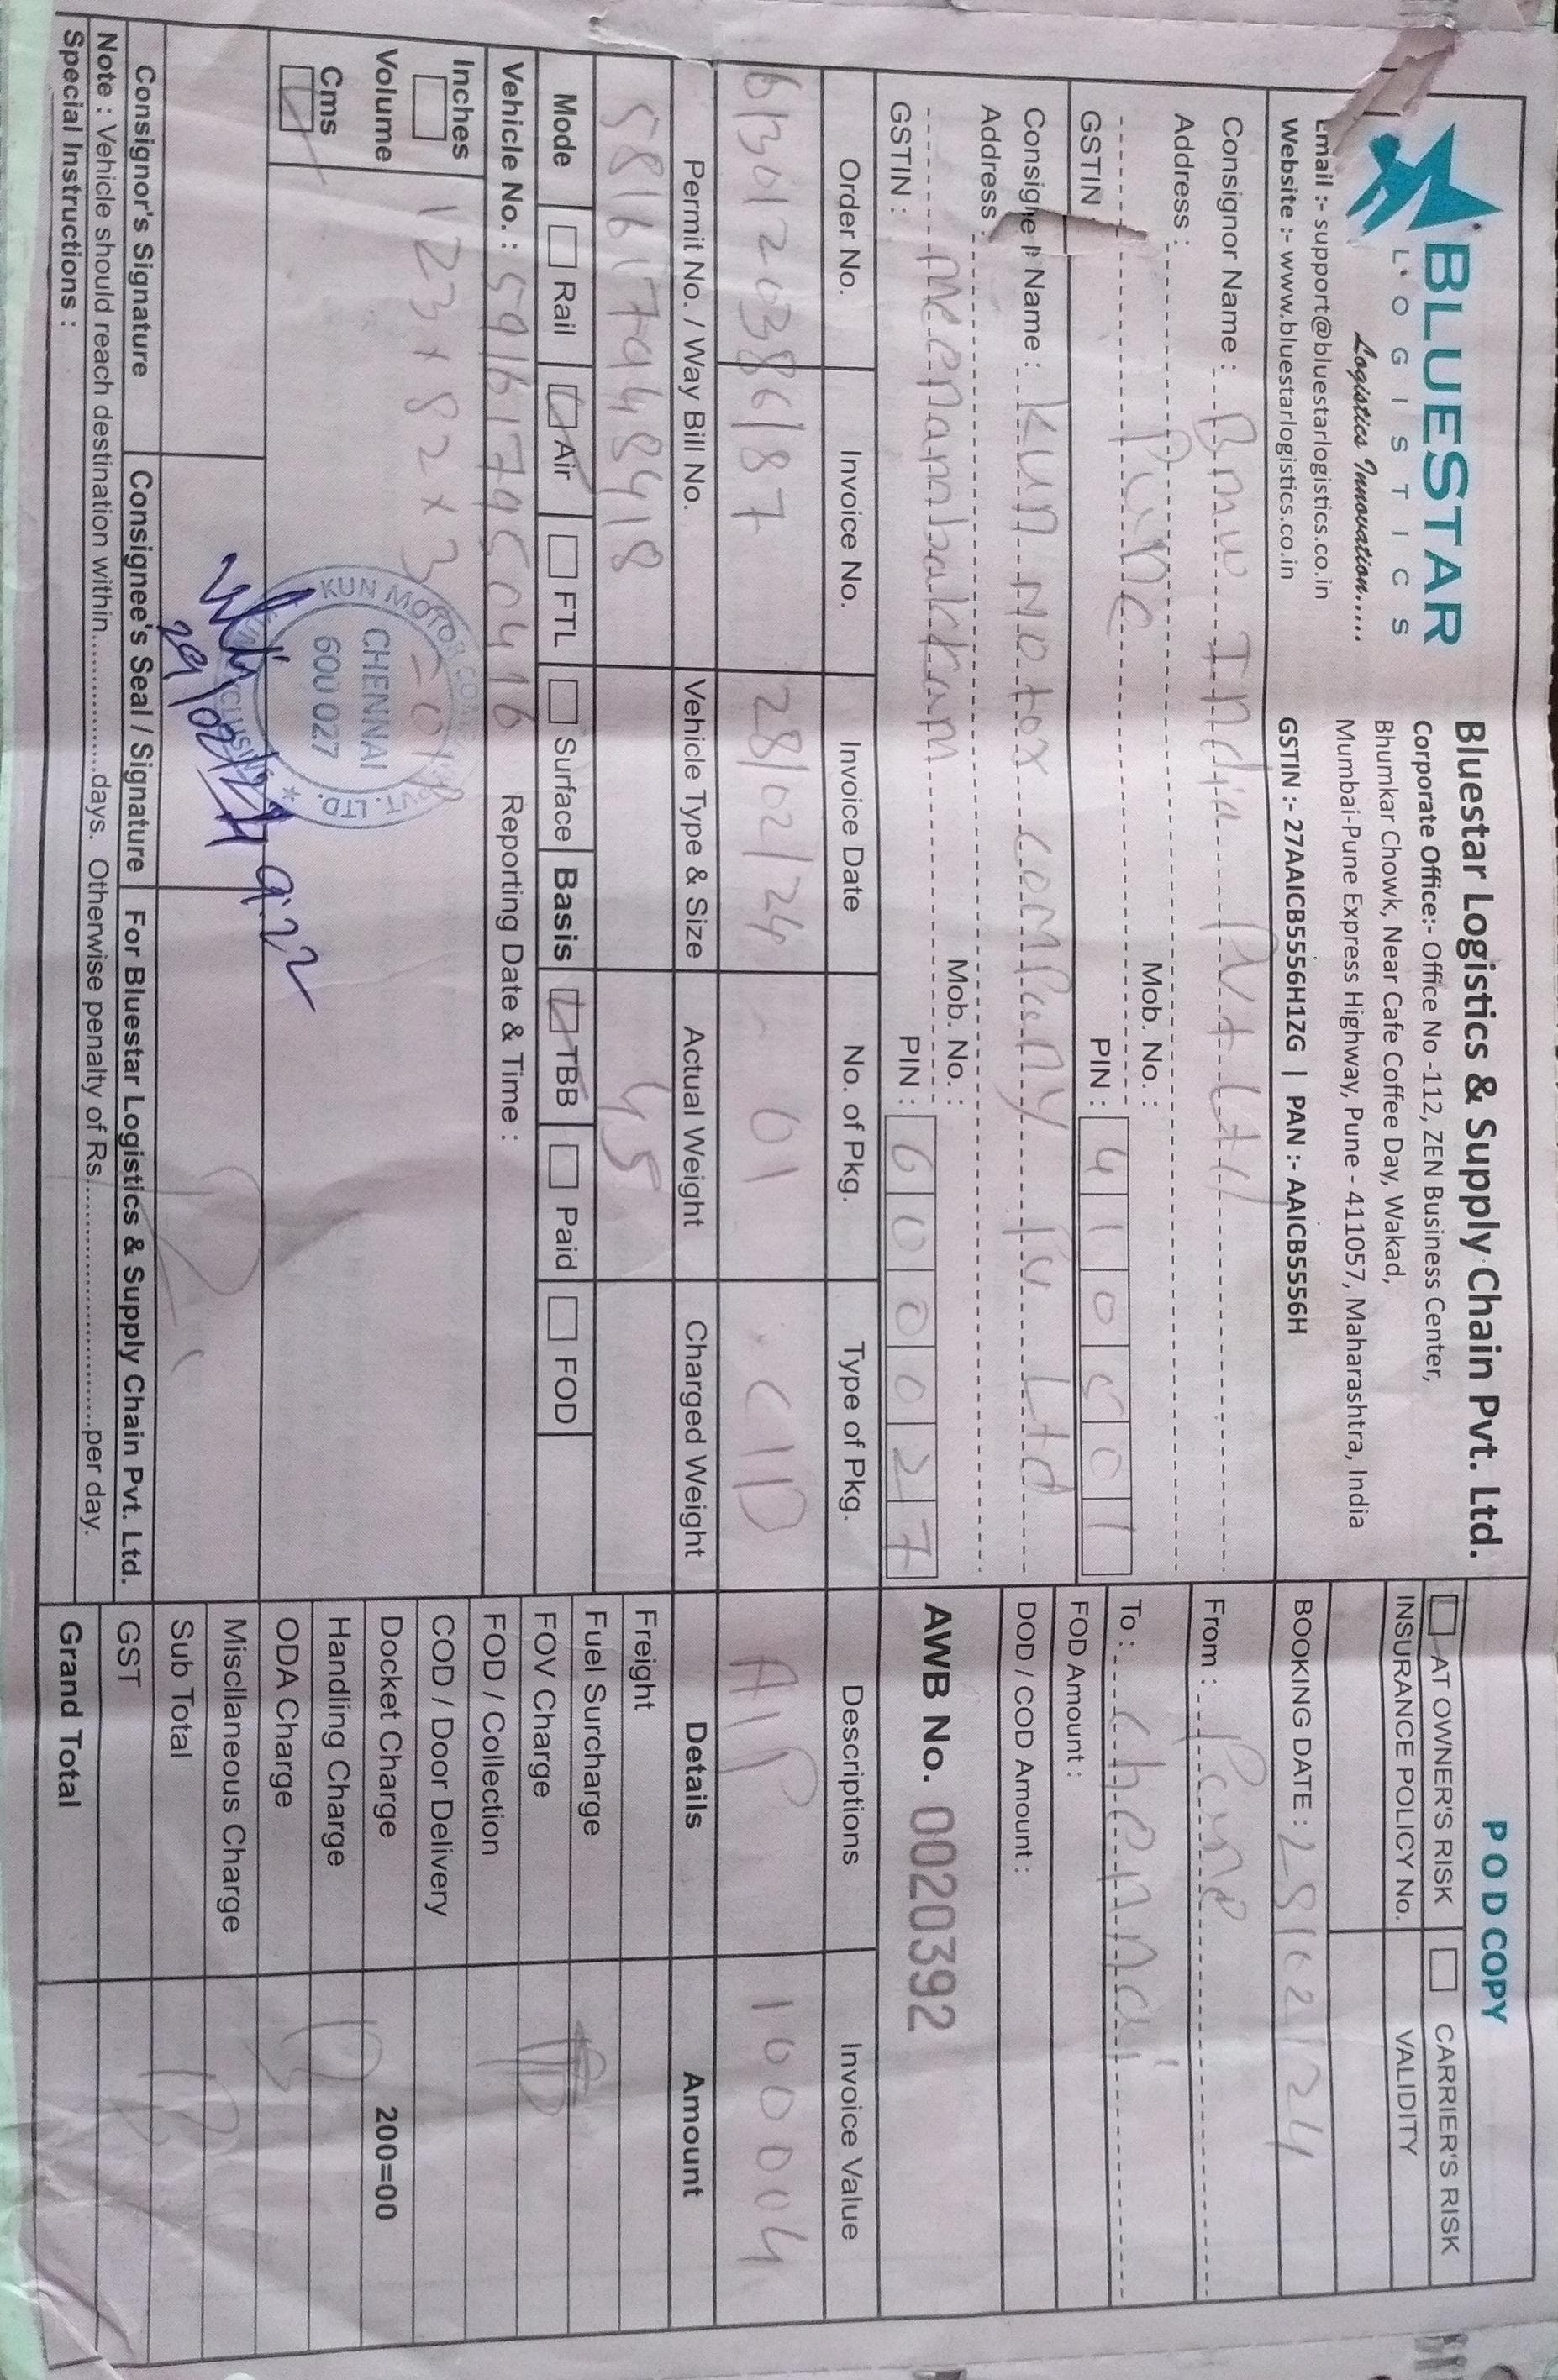 BLUESTAR
LOGISTICS
Logistics Innovation.....
Email :- support@bluestarlogistics.co.in
Website :- www.bluestarlogistics.co.in
Bluestar Logistics & Supply Chain Pvt. Ltd.
Corporate Office:- Office No -112, ZEN Business Center,
Bhumkar Chowk, Near Cafe Coffee Day, Wakad,
Mumbai-Pune Express Highway, Pune - 411057, Maharashtra, India
GSTIN :- 27AAICB5556H1ZG | PAN :- AAICB5556H
POD COPY
AT OWNER'S RISK CARRIER'S RISK
INSURANCE POLICY No. VALIDITY
BOOKING DATE : 28/02/24
Consignor Name : Bmw India Pvt Ltd
Address :
Pune
Mob. No. :
GSTIN
PIN : 410501
From : Pune
To : chennai
FOD Amount :
DOD / COD Amount :
Consignee Name : KUN Motor Company Pv Ltd
Address :
meenambakkam
Mob. No. :
GSTIN :
PIN : 600027
AWB No. 0020392
Order No. Invoice No. Invoice Date No. of Pkg. Type of Pkg. Descriptions Invoice Value
6130120386/87 28/02/24 01 C/D A/P 100004
Permit No. / Way Bill No. Vehicle Type & Size Actual Weight Charged Weight Details Amount
581617948418 45
Mode Rail Air FTL Surface Basis TBB Paid FOD
Vehicle No. : 591617950416 Reporting Date & Time :
Inches
Volume
Cms
123 x 82 x 3
KUN MOTOR COMPANY PVT. LTD.
CHENNAI
600 027
29/02/24 9:22
Freight
Fuel Surcharge
FOV Charge
FOD / Collection
COD / Door Delivery
Docket Charge 200=00
Handling Charge
ODA Charge
Miscllaneous Charge
Sub Total
GST
Grand Total
Consignor's Signature Consignee's Seal / Signature For Bluestar Logistics & Supply Chain Pvt. Ltd.
Note : Vehicle should reach destination within.................days. Otherwise penalty of Rs...............................per day.
Special Instructions :